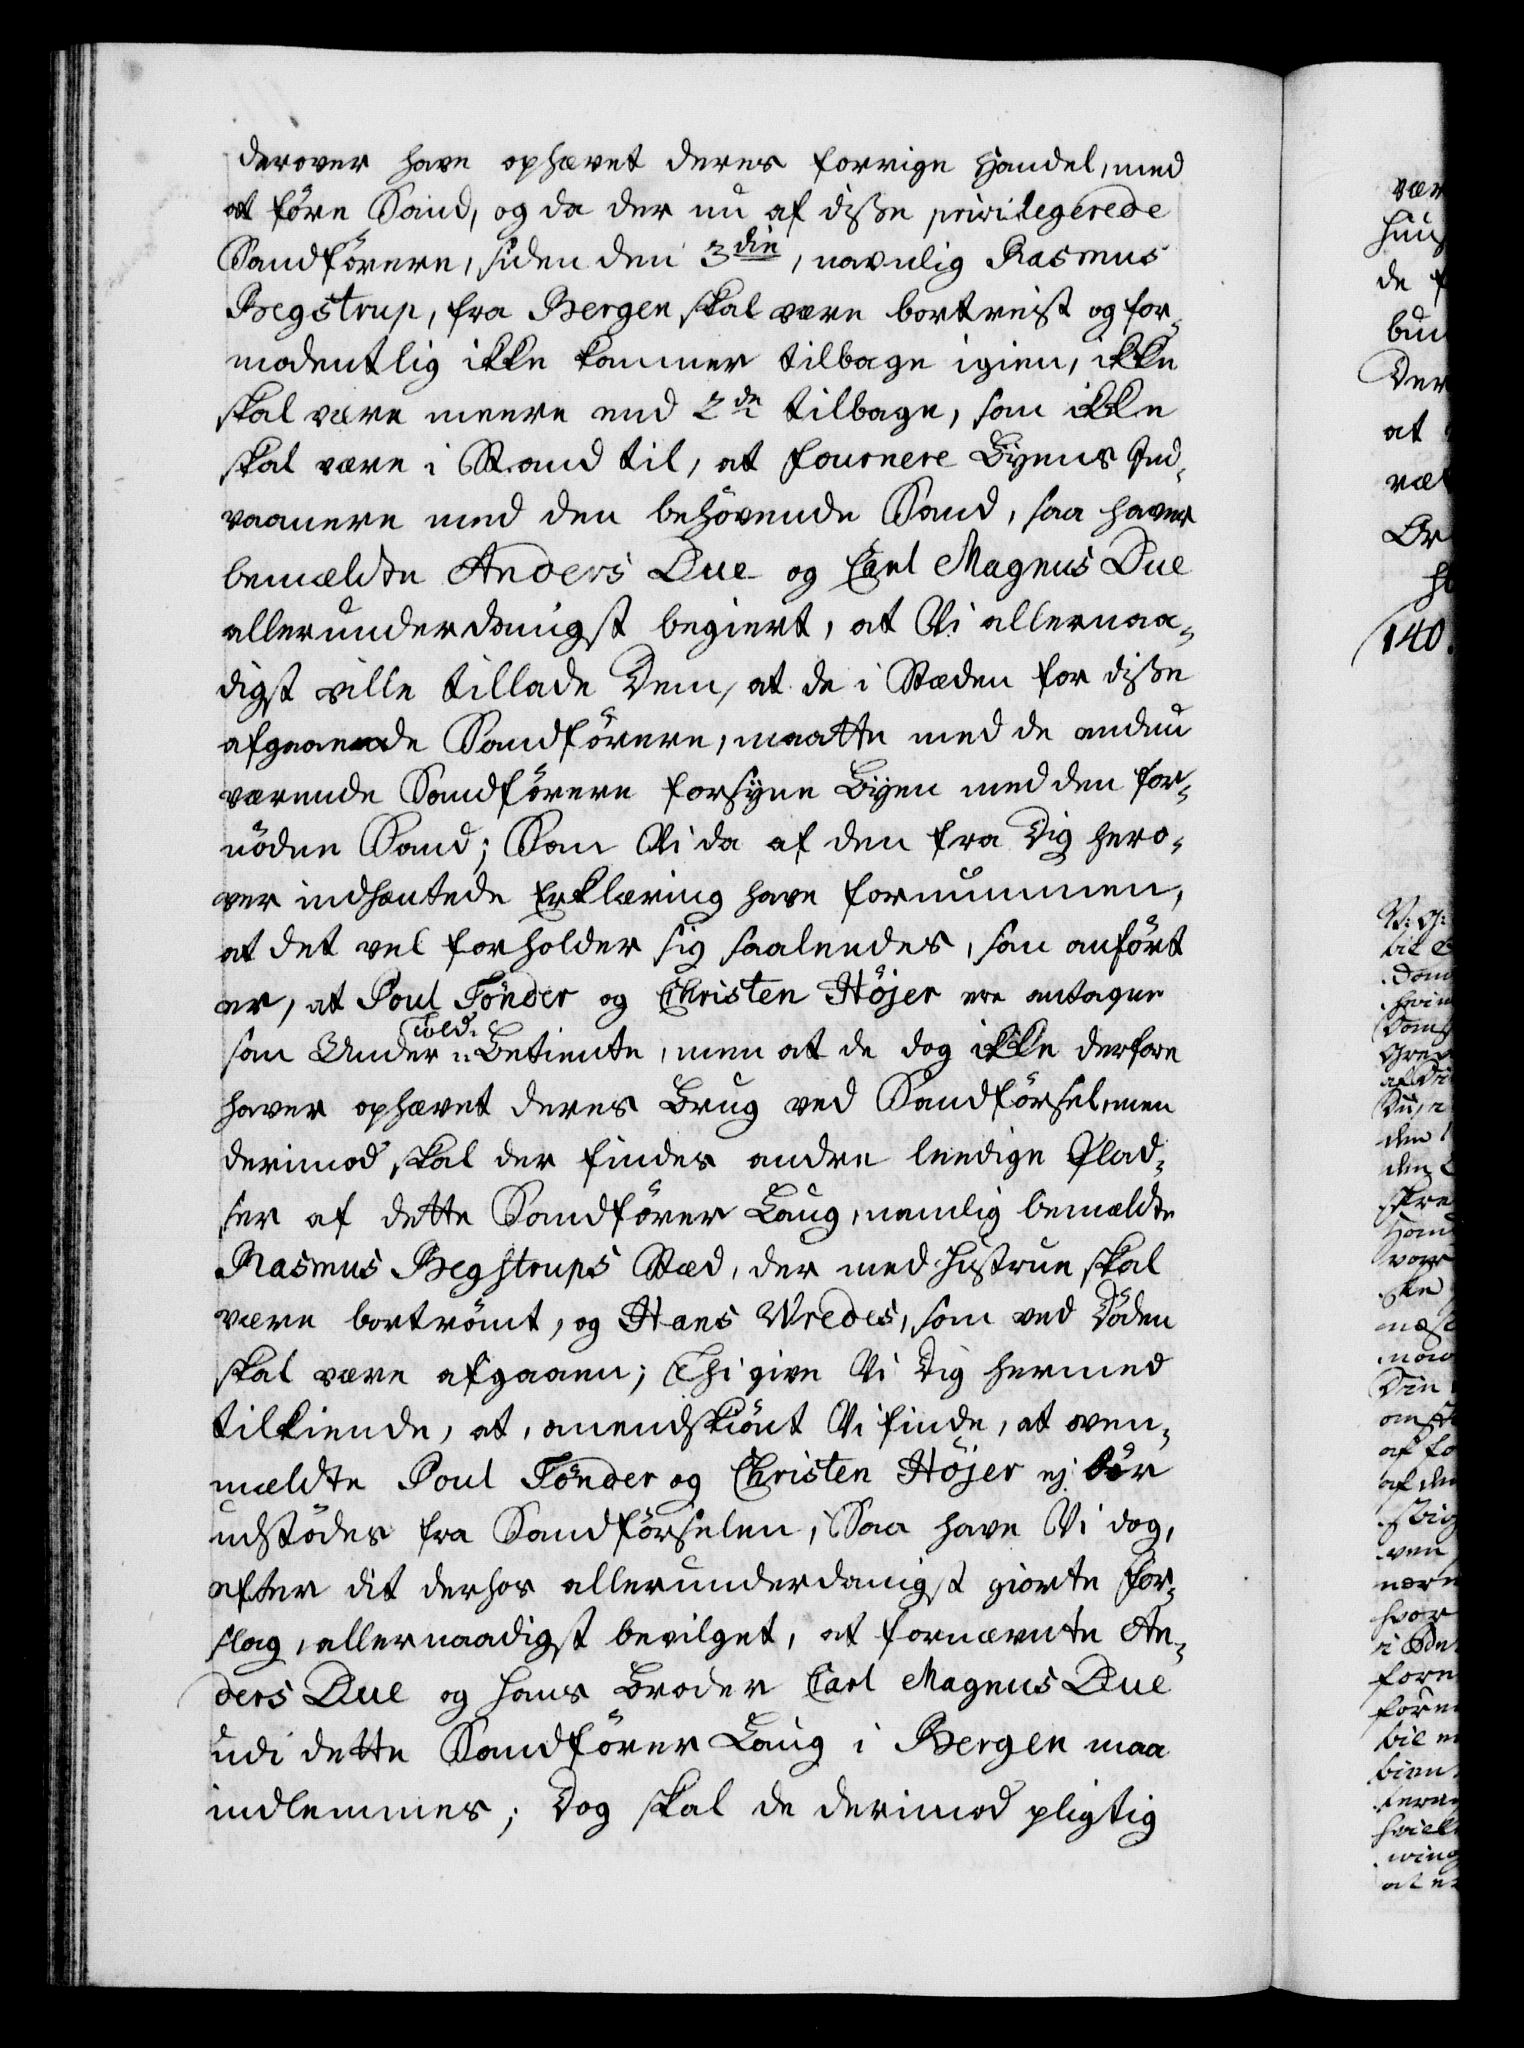 derover have ophævet deres forrige Handel, med
at føre Sand, og da der nu af disse privilegerede
Sandförere, siden den 3die, navnlig Rasmus
Begstrup, fra Bergen skal være bortreist og for-
modentlig ikke kommer tilbage igien, ikke
skal være meere end 2de tilbage, som ikke
skal være i Stand til, at fournere Byens Ind-
vaanere med den behövende Sand, saa haver
bemældte Anders Due og Carl Magnus Due
allerunderdanigst begiert, at Vi allernaa-
digst ville tillade Dem, at de i Stæden for disse
afgaaende Sandförere, maatte med de endnu
værende Sandförere forsyne Byen med den for-
nöden Sand; Som Vi da af den fra Dig hero-
ver indhentede Erklæring have fornummen,
at det vel forholder sig saaleedes, som anfört
er, at Poul Tönder og Christen Höjer ere antagne
som Under Told-Betiente, men at de dog ikke derfore
haver ophævet deres Brug ved Sandförsel, men
derimod skal der findes andre leedige Plad-
ser af dette Sandförer Laug, nemlig bemældte
Rasmus Begstrups Stæd, der med Hustrue skal
være bortrömt, og Hans Wredes, som ved Döden
skal være afgaaen; Thi give Vi Dig hermed
tilkiende, at, omendskiönt Vi finde, at oven-
mældte Poul Tönder og Christen Höjer ej bör
udstödes fra Sandförselen, Saa have Vi dog,
efter dit derhos allerunderdanigst giorte For-
slag, allernaadigst bevilget, at fornævnte An-
ders Due og hans Broder Carl Magnus Due
udi dette Sandförer Laug i Bergen maa
indlemmes; Dog skal de derimod pligtig
de
at
140.